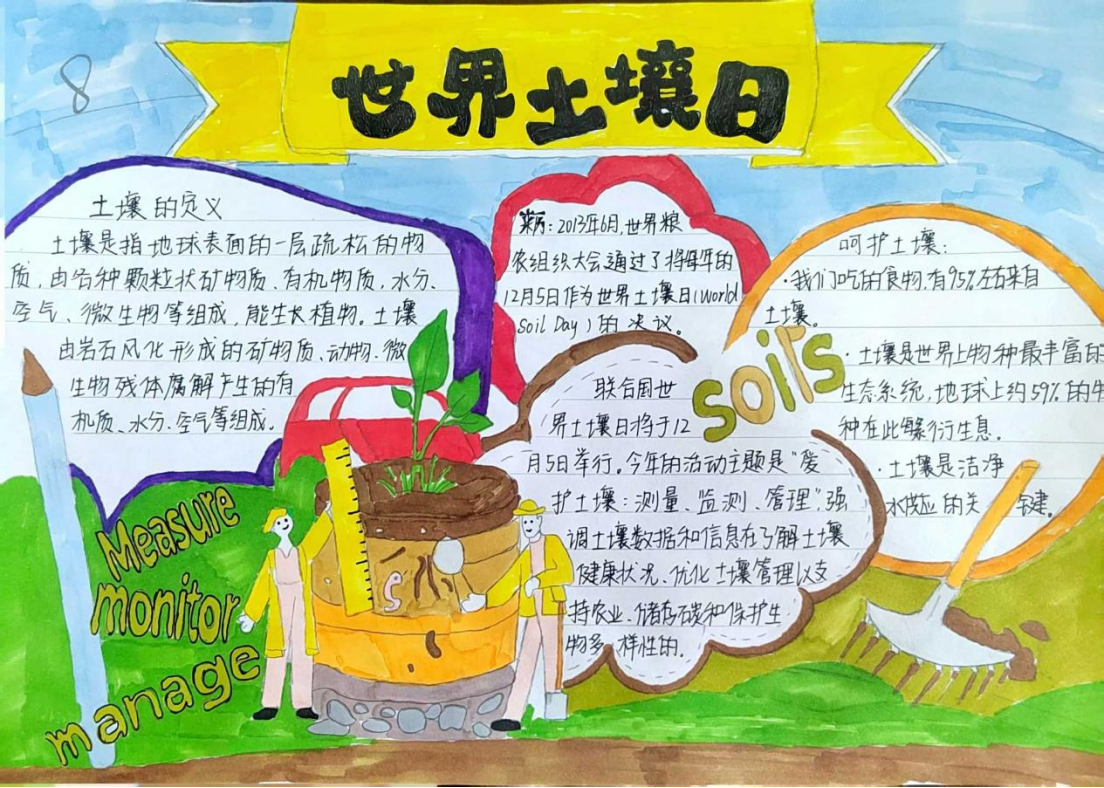 8
世界土壤日
土壤的定义
土壤是指地球表面的一层疏松的物
质，由各种颗粒状矿物质、有机物质，水分、
空气、微生物等组成，能生长植物。土壤
由岩石风化形成的矿物质、动物、微
生物残体腐解产生的有
机质、水分、空气等组成。
来历：2013年6月，世界粮
农组织大会通过了将每年的
12月5日作为世界土壤日（World
Soil Day）的决议。
联合国世
界土壤日将于12
月5日举行。今年的活动主题是“爱
护土壤：测量、监测、管理”，强
调土壤数据和信息在了解土壤
健康状况、优化土壤管理以支
持农业、储存碳和保护生
物多样性的。
呵护土壤：
·我们吃的食物，有95%左右来自
土壤。
·土壤是世界上物种最丰富的
生态系统，地球上约59%的生
种在此繁衍生息。
·土壤是洁净
水供应的关键。
soils
Measure
monitor
manage